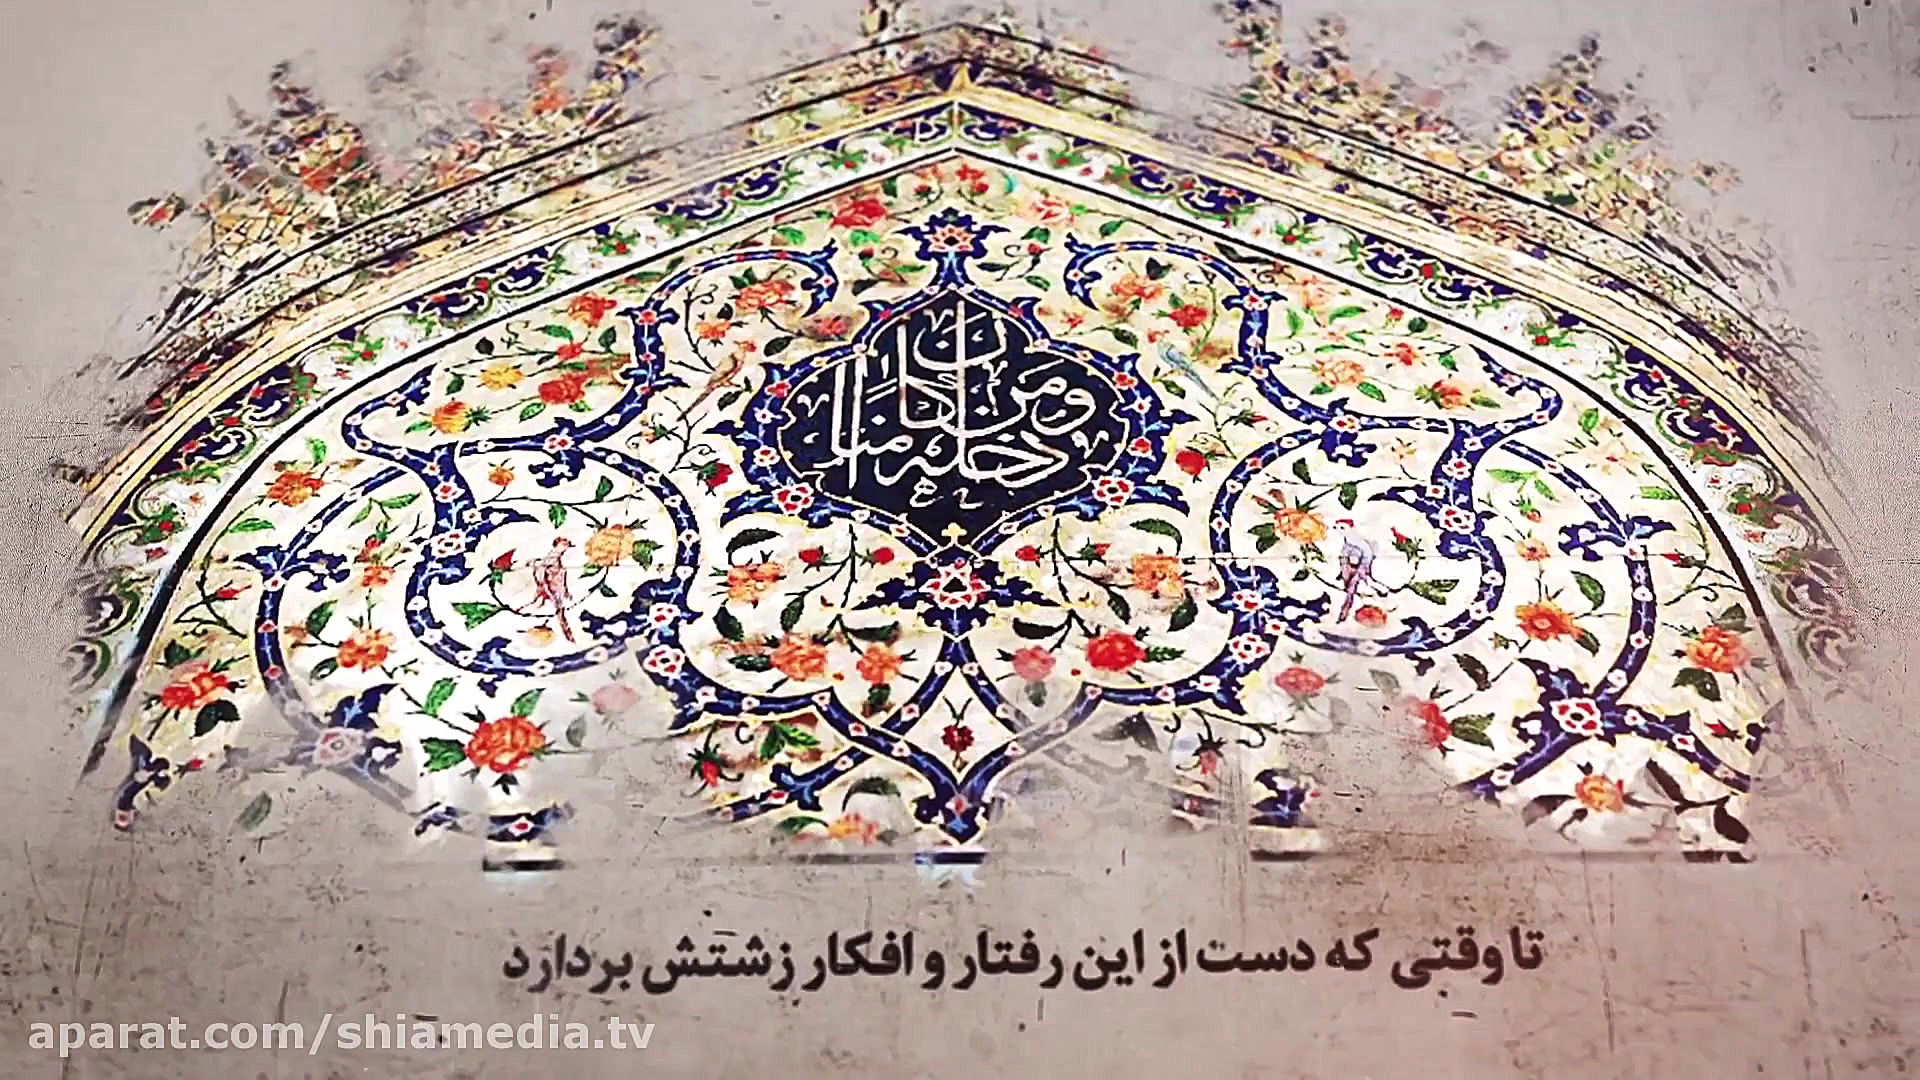 ومن دخله كان آمنا
تا وقتی که دست از این رفتار و افکار زشتش بردارد
aparat.com/shiamedia.tv